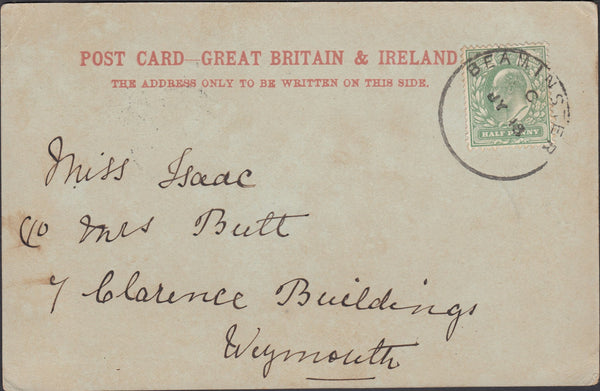 POST CARD—GREAT BRITAIN & IRELAND
THE ADDRESS ONLY TO BE WRITTEN ON THIS SIDE.
BEAMINSTER
C
JY 18
HALFPENNY
Miss Isaac
c/o Mrs Butt
7 Clarence Buildings
Weymouth